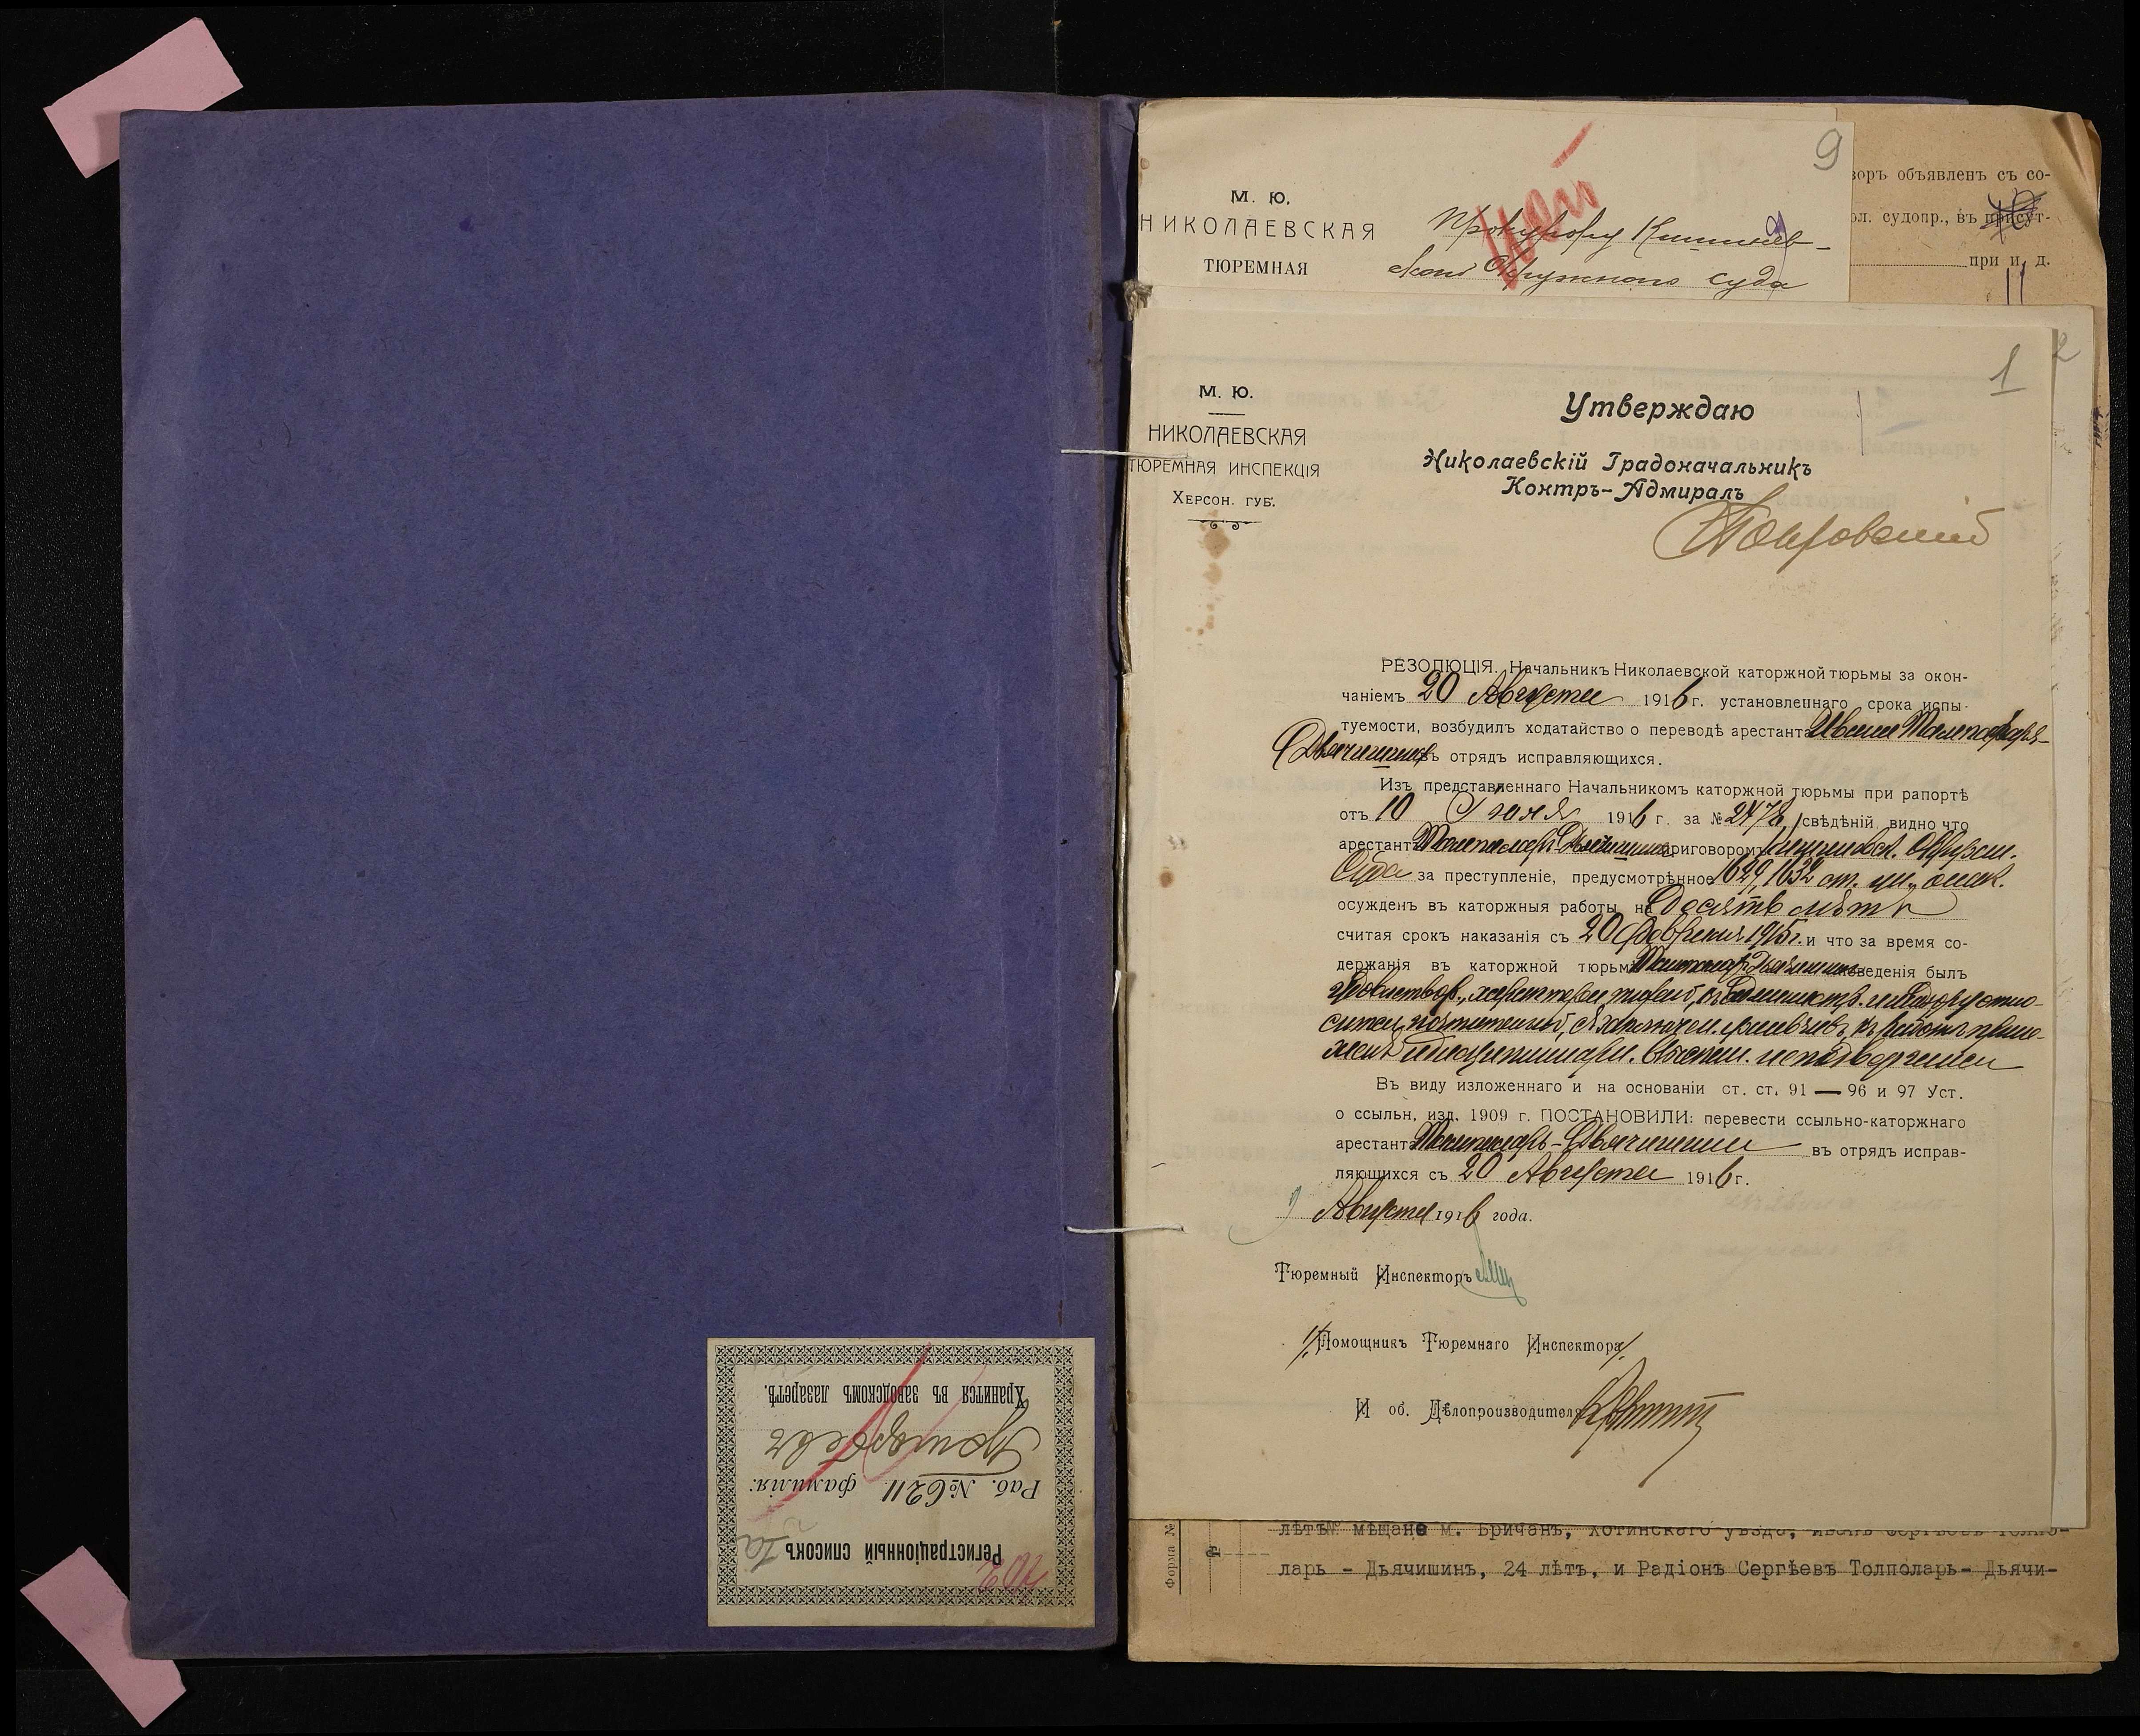 Хранится въ заводскомъ лазаретѣ.
Раб. № 6211 фамилія:
Григорьевъ
Регистраціонный списокъ
9
М. Ю.
НИКОЛАЕВСКАЯ
ТЮРЕМНАЯ
Прокурору Кишинев-
скаго Окружного суда
воръ объявленъ съ со-
ол. судопр., въ присут-
при и. д.
11
2
1
М. Ю.
НИКОЛАЕВСКАЯ
ТЮРЕМНАЯ ИНСПЕКЦІЯ
ХЕРСОН. ГУБ.
Утверждаю
Николаевскій Градоначальникъ
Контръ-Адмиралъ
РЕЗОЛЮЦІЯ. Начальникъ Николаевской каторжной тюрьмы за окон-
чаніемъ 20 Августа 1916 г. установленнаго срока испы-
туемости, возбудилъ ходатайство о переводѣ арестанта Ивана Толполаря-
Дьячишина въ отрядъ исправляющихся.
Изъ представленнаго Начальникомъ каторжной тюрьмы при рапортѣ
отъ 10 Іюня 1916 г. за № 2478, свѣдѣній видно что
арестантъ Толполарь-Дьячишинъ приговоромъ Кишиневск. Окружн.
Суда за преступленіе, предусмотрѣнное 1629, 1632 ст. ул. о нак.
осужденъ въ каторжныя работы на Десять лѣтъ
считая срокъ наказанія съ 20 Февраля 1915 г. и что за время со-
держанія въ каторжной тюрьмѣ Толполарь-Дьячишинъ поведенія былъ
удовлетвор., характера тихаго, къ администр. и надзору отно-
сится почтительно, съ заключен. уживчивъ, къ работѣ приле-
женъ дисциплинарн. взыскан. не подвергался
Въ виду изложеннаго и на основаніи ст. ст. 91 — 96 и 97 Уст.
о ссыльн. изд. 1909 г. ПОСТАНОВИЛИ: перевести ссыльно-каторжнаго
арестанта Толполарь-Дьячишина въ отрядъ исправ-
ляющихся съ 20 Августа 1916 г.
9 Августа 1916 года.
Тюремный Инспекторъ
Помощникъ Тюремнаго Инспектора
И об. Дѣлопроизводителя
Форма №
лѣтъ мѣщане м. Бричанъ, Хотинскаго уѣзда, Иванъ Сергѣевъ Толпо-
ларь - Дьячишинъ, 24 лѣтъ, и Радіонъ Сергѣевъ Толполарь- Дьячи-